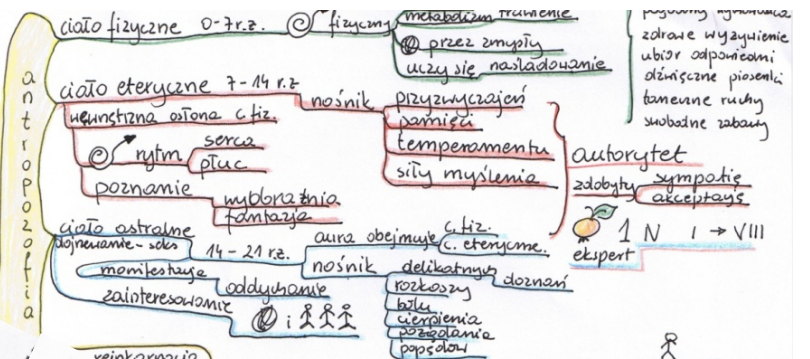 antropozofia
ciało fizyczne 0-7 r.ż.
fizyczny
metabolizm trawienie
przez zmysły
uczy się naśladowanie
zdrowe wyżywienie
ubiór odpowiedni
dźwięczne piosenki
taneczne ruchy
swobodne zabawy
ciało eteryczne 7-14 r.ż
wewnętrzna osłona c. fiz.
rytm
serca
płuc
poznanie
wyobraźnia
fantazja
nośnik
przyzwyczajeń
pamięci
temperamentu
siły myślenia
autorytet
zdobyty
sympatię
akceptację
1 N I → VIII
ekspert
ciało astralne
dojrzewanie - seks
14-21 r.ż.
aura obejmuje
c. fiz.
c. eteryczne.
nośnik
delikatnych doznań
rozkoszy
bólu
cierpienia
pożądania
popędów
manifestacja
oddychanie
zainteresowanie
i
reinkarnacja